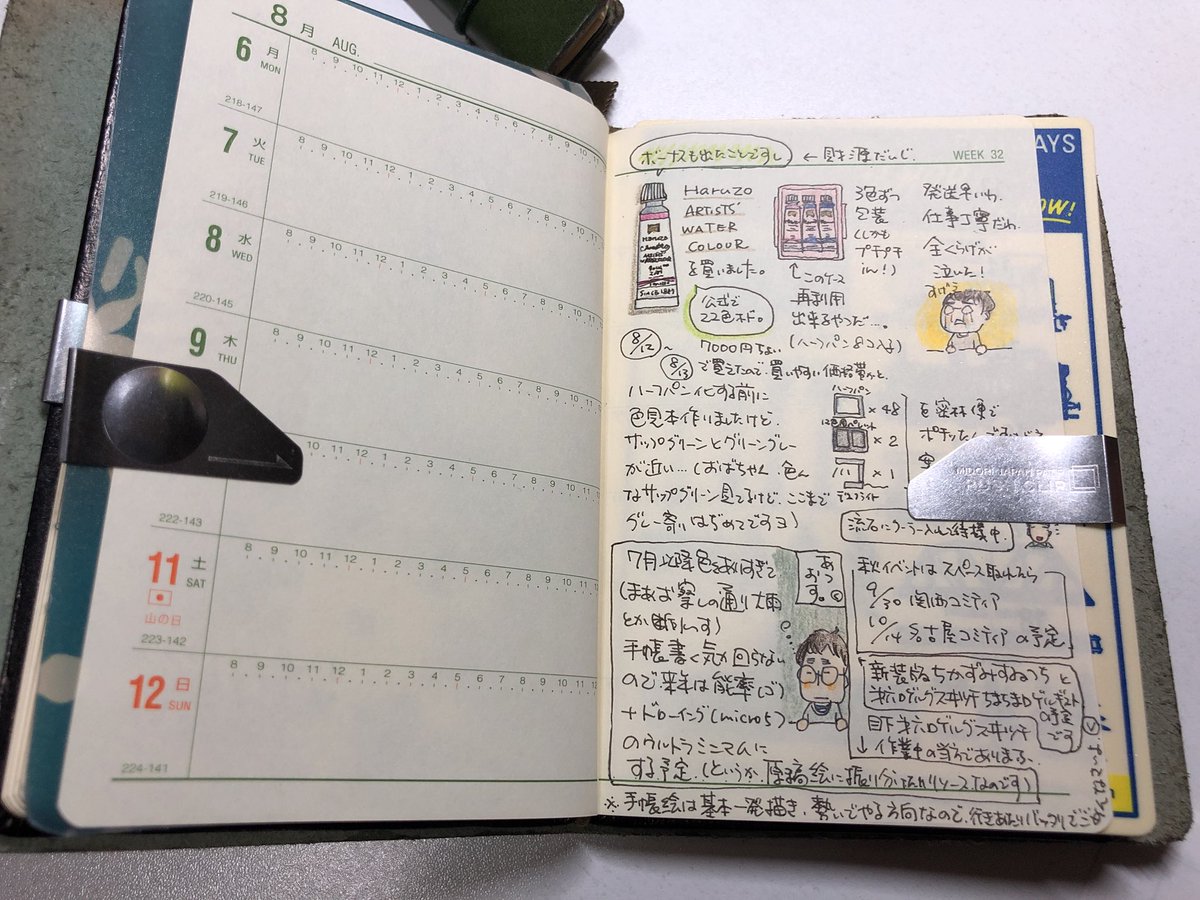 8月 AUG.
6 月 MON
8 9 10 11 12 1 2 3 4 5 6 7 8 9 10 11
218-147
7 火 TUE
8 9 10 11 12 1 2 3 4 5 6 7 8 9 10 11
219-146
8 水 WED
8 9 10 11 12 1 2 3 4 5 6 7 8 9 10 11
220-145
9 木 THU
8 9 10 11 12 1 2 3 4 5 6 7 8 9 10 11
10 11 12 1 2 3 4 5 6 7 8 9 10 11
222-143
11 土 SAT
山の日
8 9 10 11 12 1 2 3 4 5 6 7 8 9 10 11
223-142
12 日 SUN
8 9 10 11 12 1 2 3 4 5 6 7 8 9 10 11
224-141
ボーナスも出たことですし
←財源だいじ.
WEEK 32
AYS
OW!
Haruzo
ARTISTS'
WATER
COLOUR
を買いました。
公式で
22色ホド。
3色ずつ
包装
(しかも
プチプチ
in!)
↑このケース
再利用
出来るやつだ…。
(ハーフパン8コ入る)
発送早いわ.
仕事丁寧だわ.
全くらげが
泣いた!
すげえ
8/12~
8/13
7000円ちょい
で買えたので、買いやすい価格帯かと.
ハーフパン化する前に
色見本作りましたけど.
サップグリーンとグリーングレー
が近い…(おばちゃん、色ん
なサップグリーン見てるけど、ここまで
グレー寄りはぢめてですヨ)
ハーフパン
×48
12色用パレット
×2
×1
デスクライト
を密林便で
MIDORI JAPAN
流石にクーラー入れて待機中.
7月以降色をあげすぎて
手帳書く気が回らない
ので来年は能率(ゴ)
+ドローイング(micro5)
のウルトラミニマムに
する予定.(というか、原稿絵に振り分けたいリソースなのです)
あつ
おす。
秋イベントはスペース取れたら
9/30 関西コミティア
10/14 名古屋コミティア の予定
新装版ちかずみするつち と
の予定
です
↓作業中の当方であります、
※手帳絵は基本一発描き、勢いでやる方向なので、行きあたりバッタリでござ